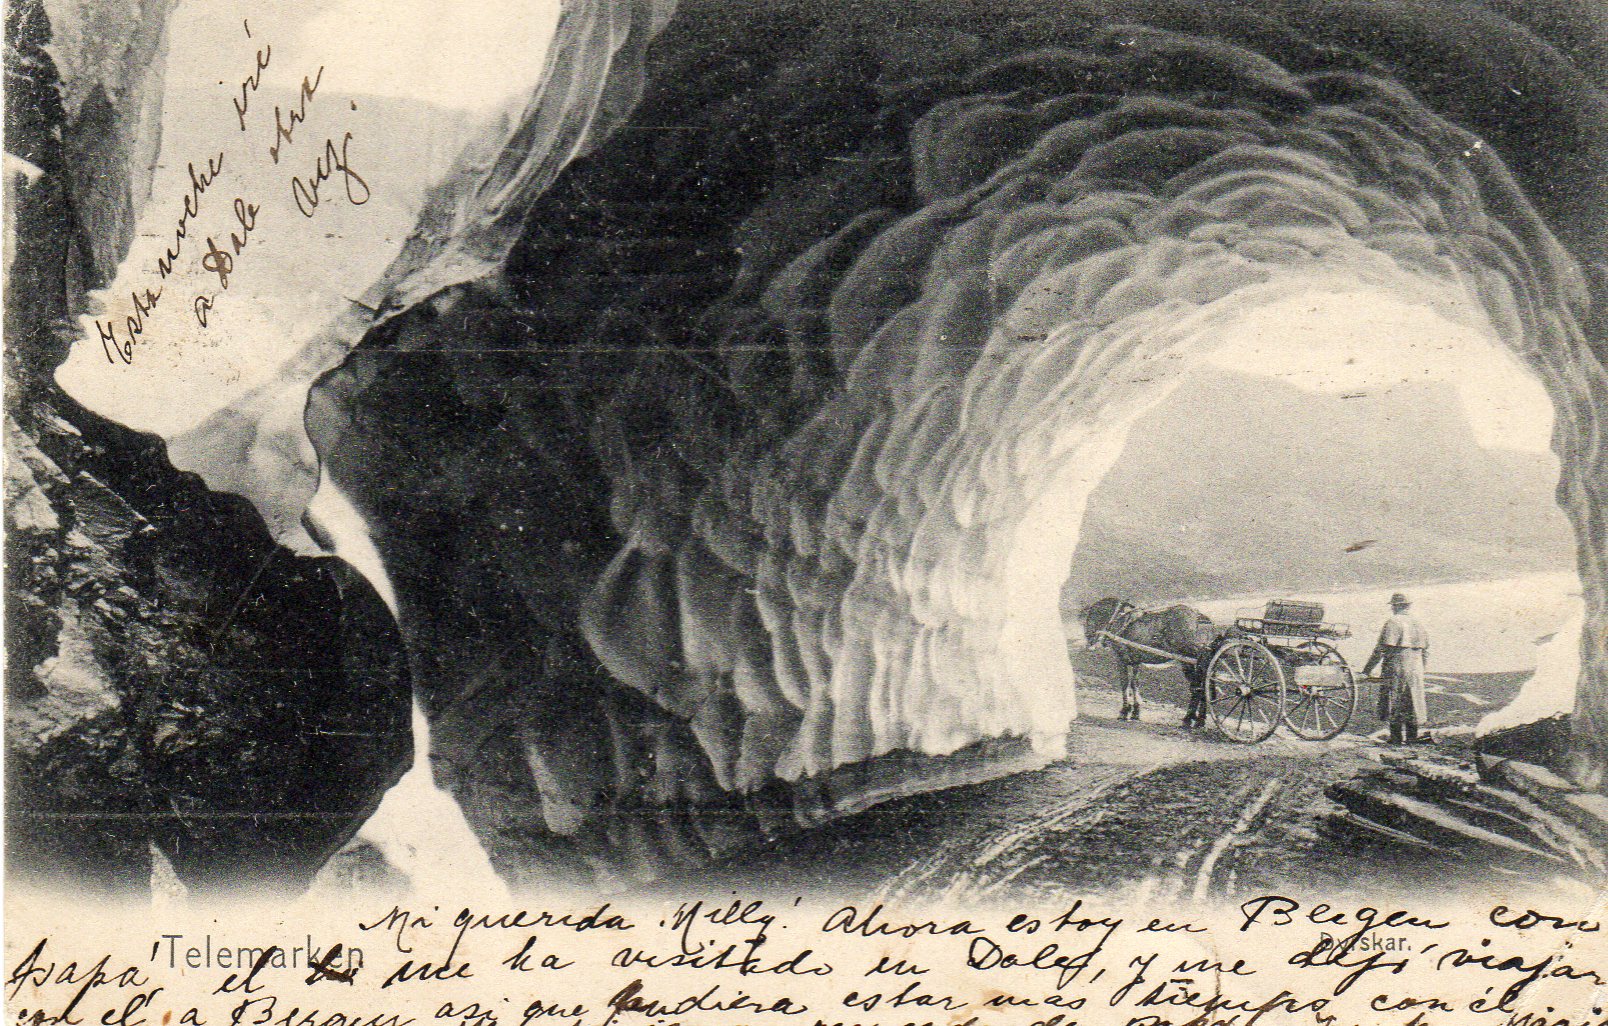 Esta noche iré
a Dale otra
vez.
Mi querida Milly! Ahora estoy en Bergen con
Telemarken
Dyrskar.
papá, el me ha visitado en Dale, y me dejó viajar
con él a Bergen asi que pudiera estar mas tiempo con él.